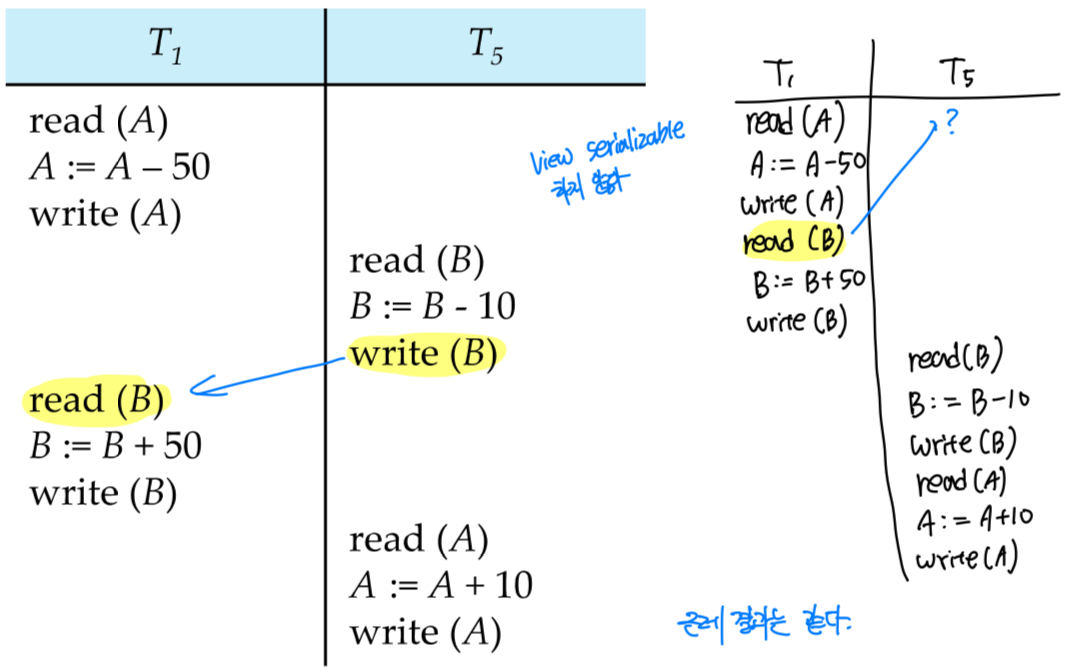 T₁ T₅
read (A)
A := A – 50
write (A)
read (B)
B := B - 10
write (B)
read (B)
B := B + 50
write (B)
read (A)
A := A + 10
write (A)
view serializable
하지 않다
T₁ T₅
?
read (A)
A := A-50
write (A)
read (B)
B := B+50
write (B)
read (B)
B := B-10
write (B)
read (A)
A := A+10
write (A)
근데 결과는 같다.